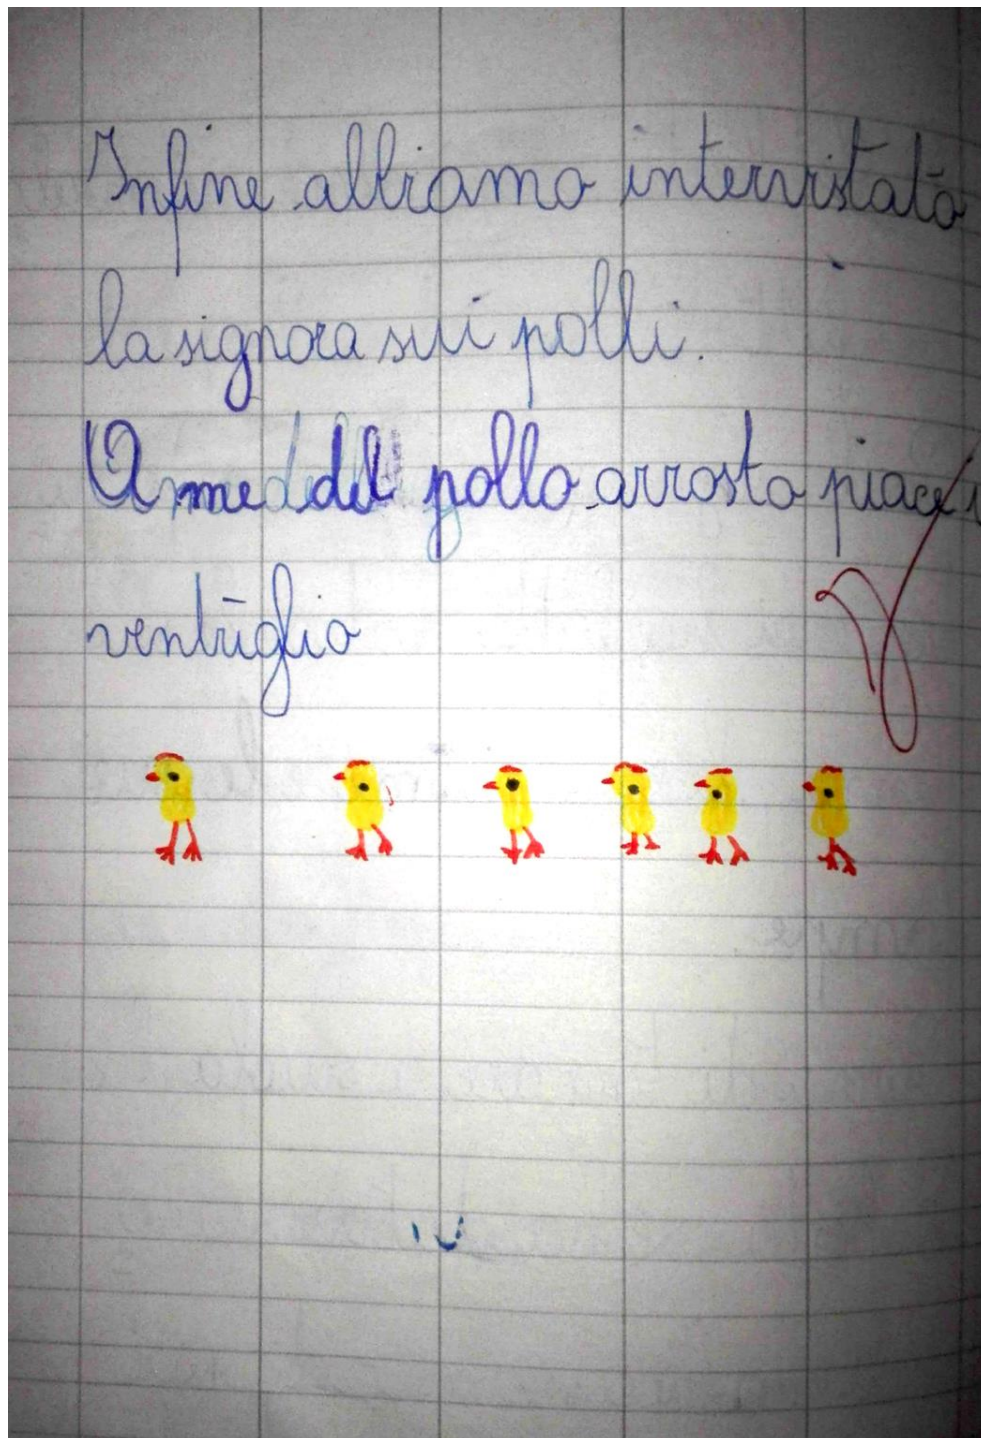 Infine abbiamo intervistato
la signora sui polli.
A me del pollo arrosto piace i
ventriglio